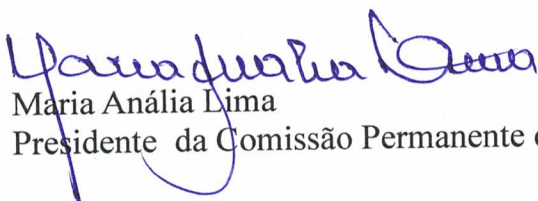 Maria Anália Lima
Maria Anália Lima
Presidente da Comissão Permanente